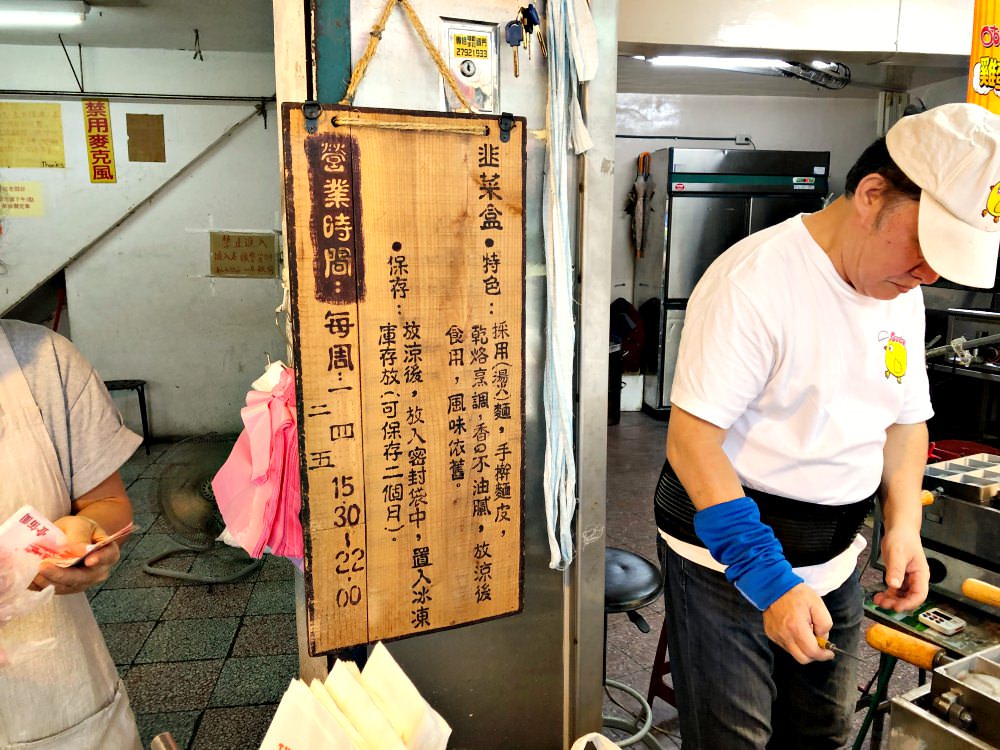 韭菜盒•特色：採用(燙)麵，手擀麵皮，
乾烙烹調，香Q不油膩，放涼後
食用，風味依舊。
•保存：放涼後，放入密封袋中，置入冰凍
庫存放(可保存二個月)。
營業時間：每周：一二四五 15:30~22:00
禁用麥克風
Thanks
禁止進入
27921933